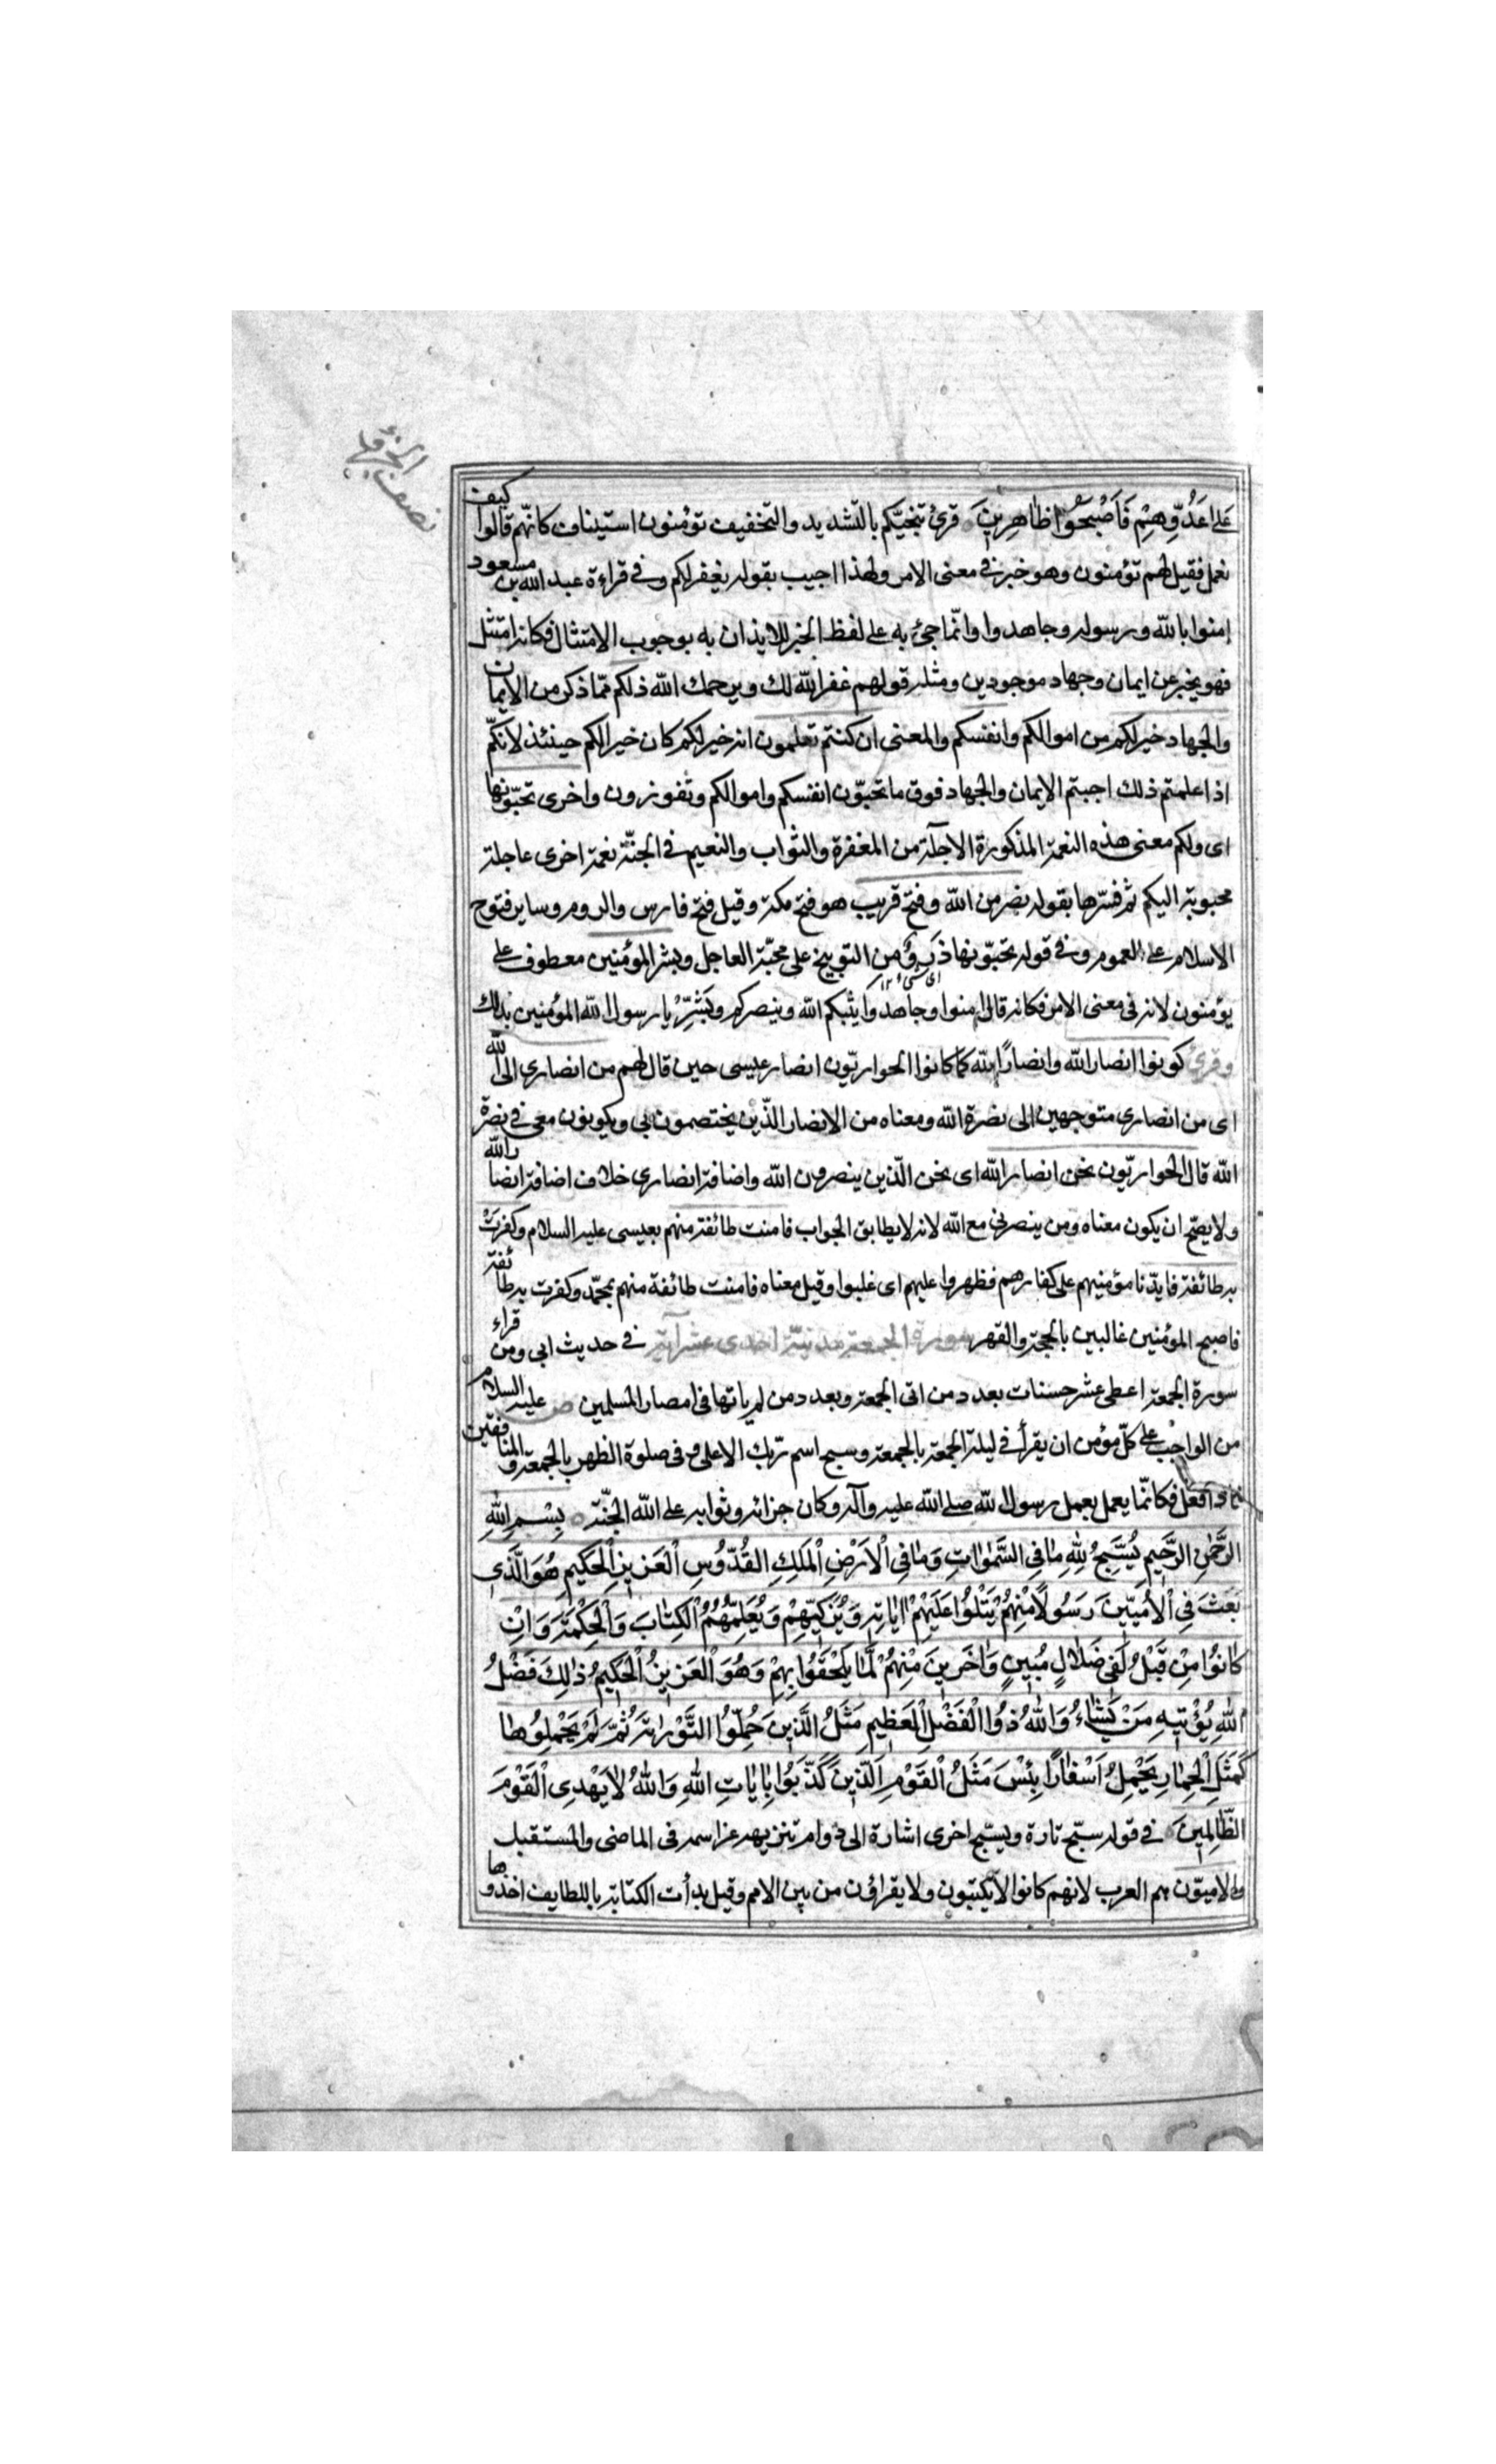 نصف الجزء
على عَدُوِّهِمْ فَاَصْبَحُوا ظاهِرينَ قرئ تنجيكم بالتشديد والتخفيف تؤمنون استيناف كانّهم قالوا كيف
نعمل فقيل لهم تؤمنون وهو خبر فى معنى الامر ولهذا اجيب بقوله يغفر لكم وفى قراءة عبد الله بن مسعود
امنوا بالله ورسوله وجاهدوا وانّما جئ به على لفظ الخبر للايذان به بوجوب الامتثال فكانه امتثل
فهو يخبر عن ايمان وجهاد موجودين ومثله قولهم غفر الله لك ويرحمك الله ذلكم ممّا ذكر من الايمان
والجهاد خير لكم من اموالكم وانفسكم والمعنى ان كنتم تعلمون انه خير لكم كان خيرا لكم حينئذ لانكم
اذا علمتم ذلك اجبتم الايمان والجهاد فوق ما تحبّون انفسكم واموالكم وتفوزون واخرى تحبّونها
اى ولكم معنى هذه النعمة المذكورة الآجلة من المغفرة والثواب والنعيم فى الجنّة نعمة اخرى عاجلة
محبوبة اليكم ثم فسّرها بقوله نصر من الله وفتح قريب هو فتح مكة وقيل فتح فارس والروم وساير فتوح
الاسلام على العموم وفى قوله تحبّونها ذَرؤ من التوبيخ على محبّة العاجل وبشر المؤمنين معطوف على
اى شئ ١٢
يؤمنون لانه فى معنى الامر فكانه قال امنوا وجاهدوا يثبكم الله وينصركم وبَشِّرْ يا رسول الله المؤمنين بذلك
وقرئ كونوا انصار الله وانصارًا لله كما كانوا الحواريّون انصار عيسى حين قال لهم من انصارى الى الله
اى من انصارى متوجهين الى نصرة الله ومعناه من الانصار الذين يختصمون بى ويكونون معى فى نصرة
الله قال الحواريّون نحن انصار الله اى نحن الّذين ينصرون الله واضافة انصارى خلاف اضافة انصار الله
ولا يصحّ ان يكون معناه ومن ينصرنى مع الله لانه لا يطابق الجواب فامنت طائفة منهم بعيسى عليه السلام وكفرَتْ
به طائفة فايدّنا مؤمنيهم على كفارهم فظهروا عليهم اى غلبوا وقيل معناه فامنت طائفة منهم بمحمّد وكفرت به طائفة
فاصبح المؤمنين غالبين بالحجة والقهر سورة الجمعة مدنيّة احدى عشر آية فى حديث ابى ومن قراء
سورة الجمعة اعطى عشر حسنات بعدد من اتى الجمعة وبعدد من لم ياتها فى امصار المسلمين ص عليه السلام
من الواجب على كلّ مؤمن ان يقرأ فى ليلة الجمعة بالجمعة وسبح اسم ربّك الاعلى وفى صلوة الظهر بالجمعة والمنافقين
فاذا فعل فكانّما يعمل بعمل رسول الله صلى الله عليه وآله وكان جزائه وثوابه على الله الجنّة بِسْمِ اللهِ
الرَّحْمٰنِ الرَّحيمِ يُسَبِّحُ لِلّهِ مافِى السَّمٰواتِ وَمافِى الْاَرْضِ الْمَلِكِ القُدُّوسِ الْعَزيزِ الْحَكيمِ هُوَ الَّذى
بَعَثَ فِى الْاُمّيّينَ رَسُولًا مِنْهُمْ يَتْلُوا عَلَيْهِمْ اٰياتِه وَيُزَكّيهِمْ وَيُعَلِّمُهُمُ الْكِتابَ وَالْحِكْمَةَ وَاِنْ
كانُوا مِنْ قَبْلُ لَفى ضَلالٍ مُبينٍ وَاخَرينَ مِنْهُمْ لَمّا يَلْحَقُوا بِهِمْ وَهُوَ الْعَزيزُ الْحَكيمُ ذلِكَ فَضْلُ
اللهِ يُؤْتيهِ مَنْ يَشاءُ وَاللهُ ذُوا الْفَضْلِ الْعَظيمِ مَثَلُ الَّذينَ حُمِّلُوا التَّوْراةَ ثُمَّ لَمْ يَحْمِلُوها
كَمَثَلِ الْحِمارِ يَحْمِلُ اَسْفارًا بِئْسَ مَثَلُ الْقَوْمِ الَّذينَ كَذَّبُوا بِاياتِ اللهِ وَاللهُ لا يَهْدِى الْقَوْمَ
الظّالِمينَ فى قوله سبّح تارة ويسبّح اخرى اشارة الى دوام تنزيهه عز اسمه فى الماضى والمستقبل
والاميّون هم العرب لانهم كانوا لا يكتبون ولا يقراؤن من بين الامم وقيل بدأت الكتابة بالطايف اخذوها